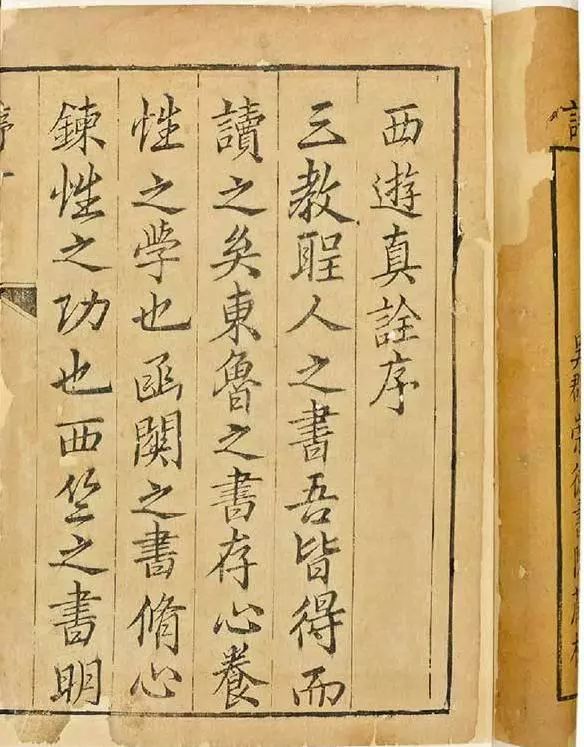 西遊真詮序
三教聖人之書吾皆得而
讀之矣東魯之書存心養
性之學也函關之書脩心
鍊性之功也西竺之書明